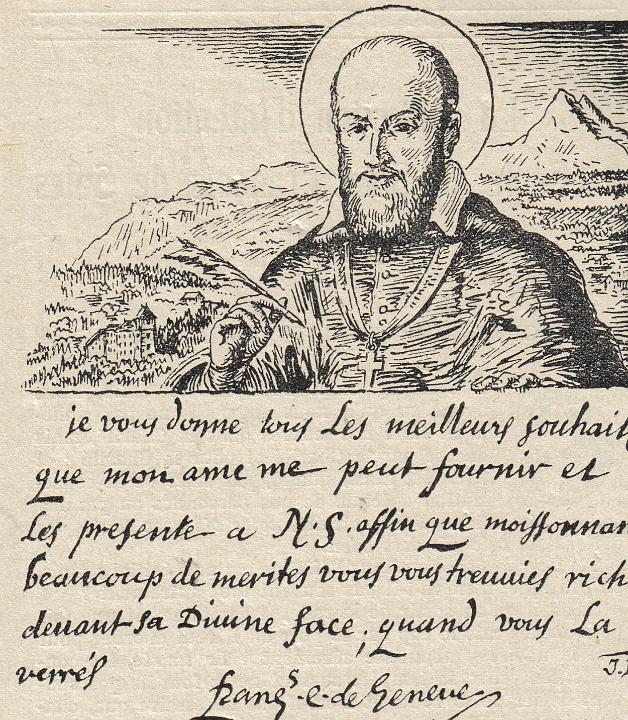 je vous donne tous Les meilleurs souhaits
que mon ame me peut fournir et
Les presente a N.S. affin que moissonnan
beaucoup de merites vous vous treuuiés rich
deuant sa Diuine face, quand vous La
verrés
J.
franç.s e. de Geneve